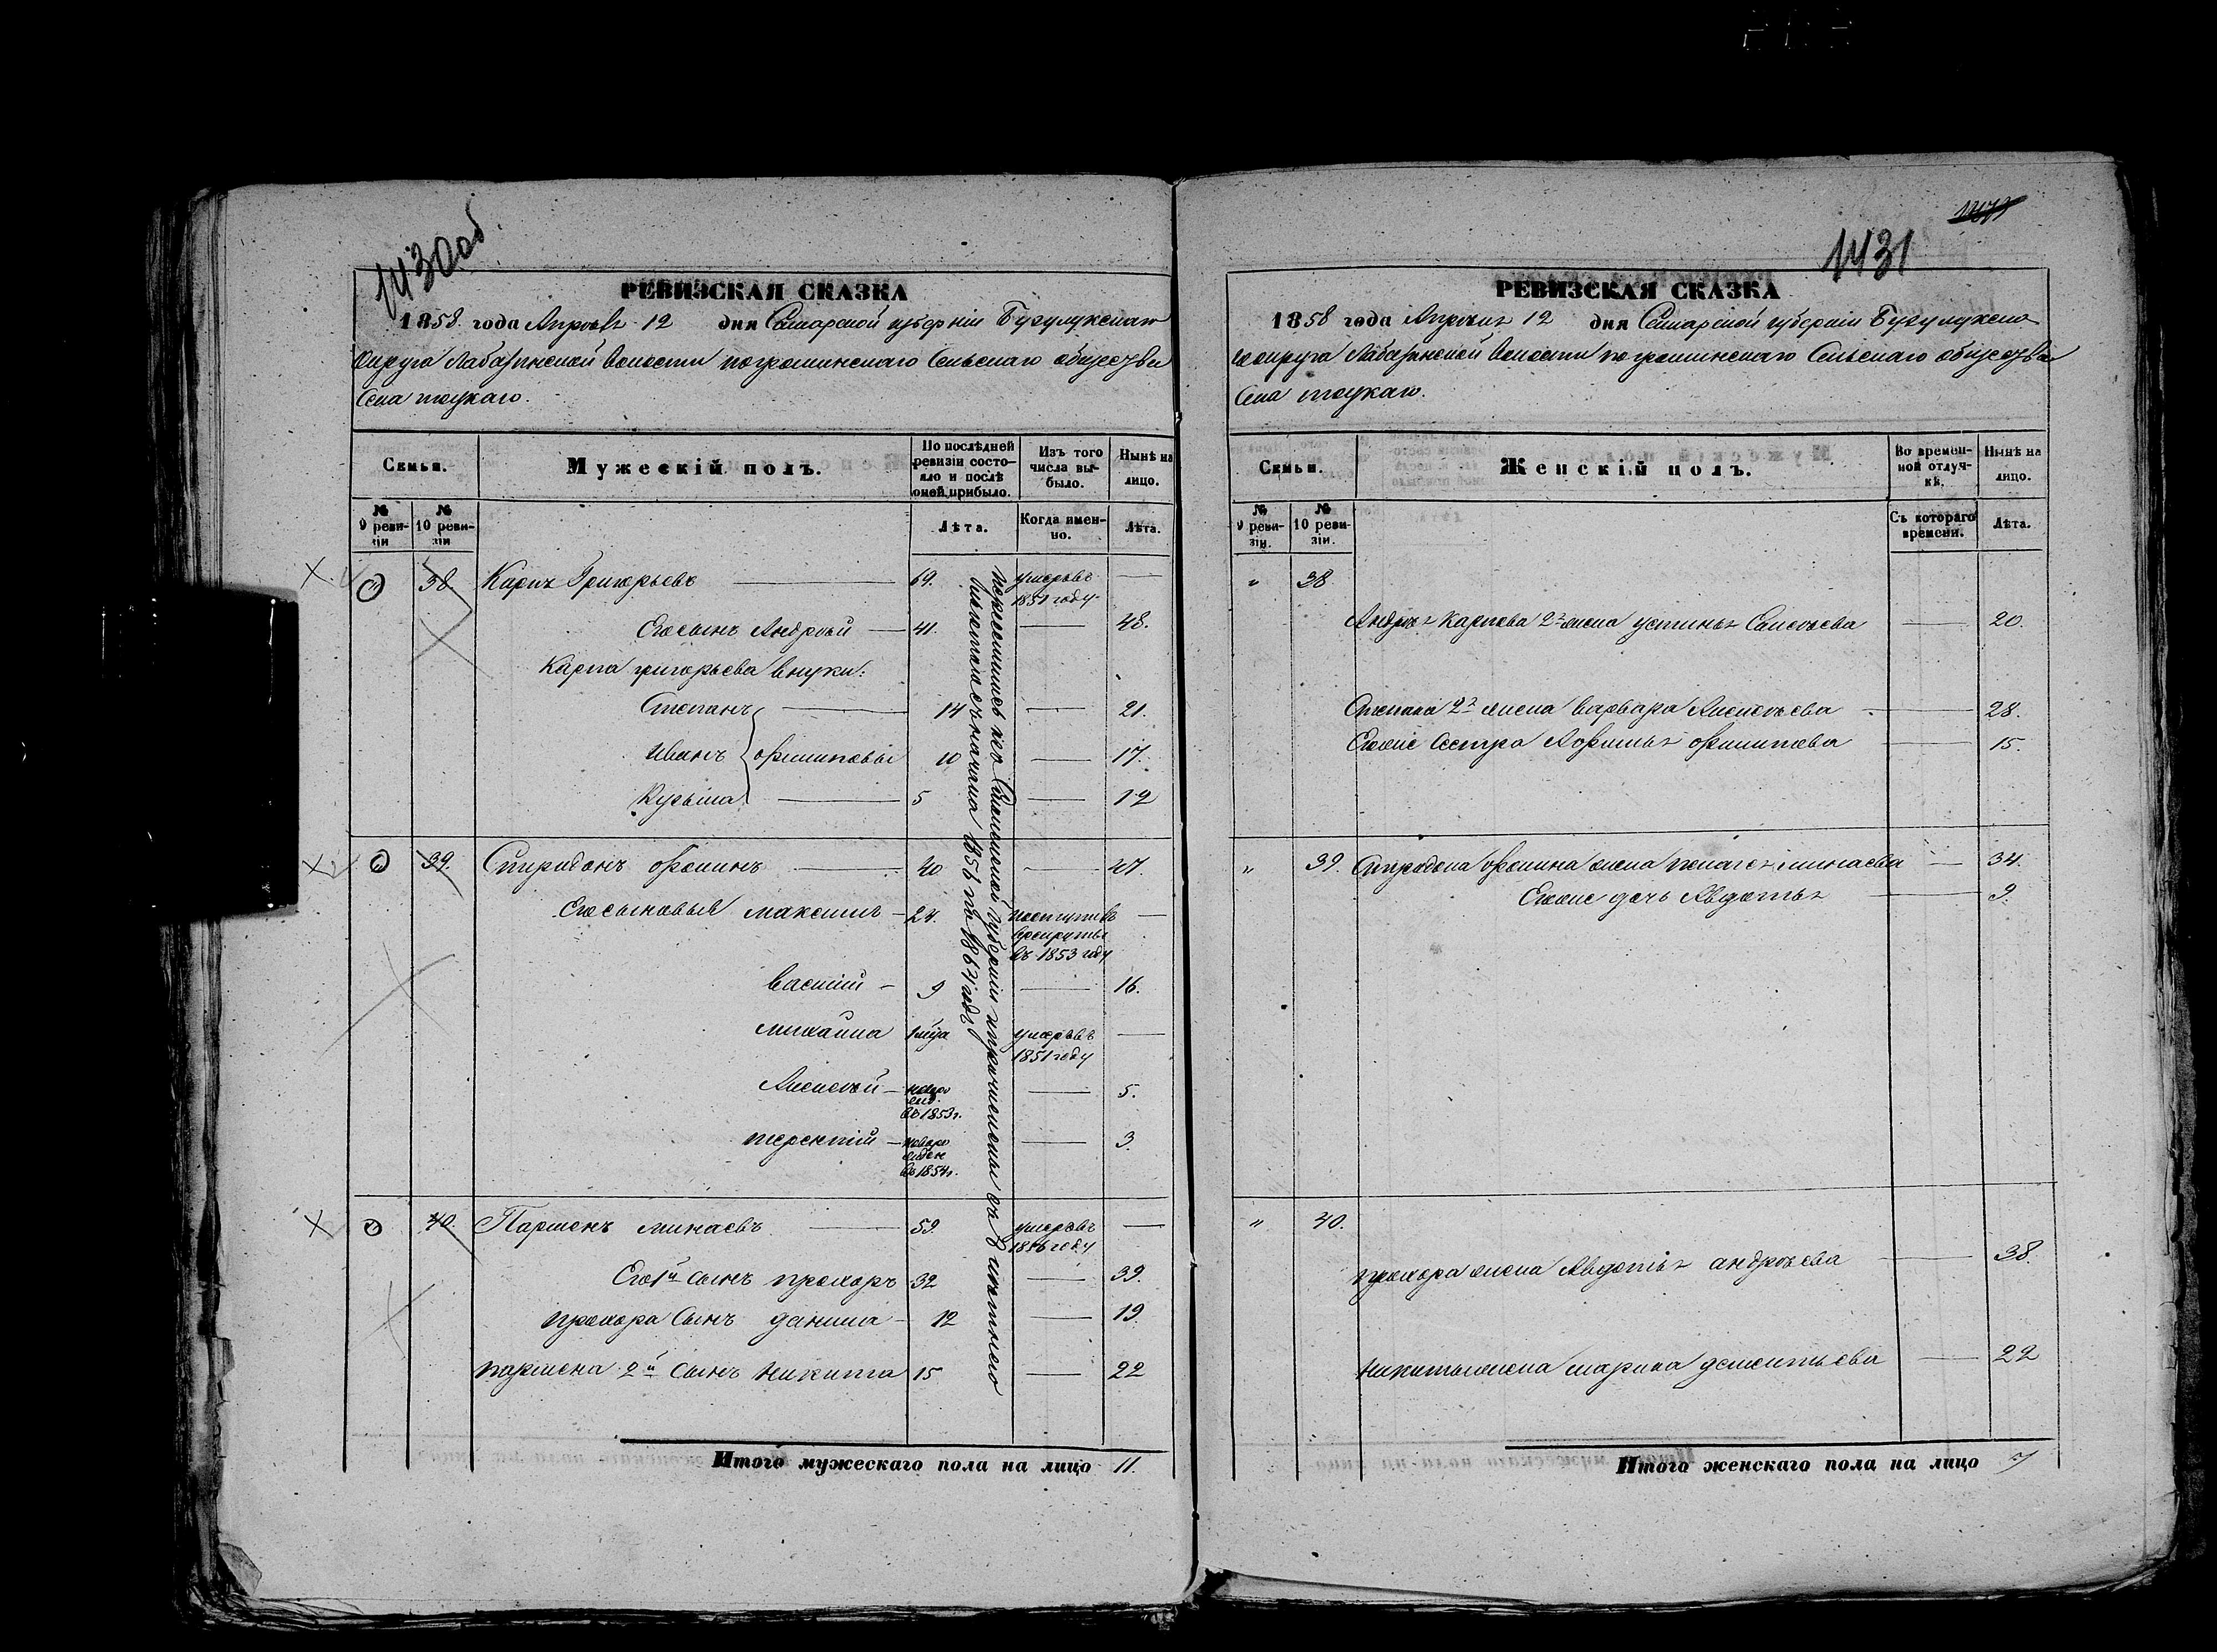 1430 об.
РЕВИЗСКАЯ СКАЗКА
1858 года Апреля 12 дня Самарской губернии Бугулукскаго
Округа Лабазинской Волости погроминскаго Сельскаго общества
Села тоцкаго.
Семьи.
Мужескій полъ.
По послѣдней ревизіи состояло и послѣ оной прибыло.
Изъ того числа выбыло.
Нынѣ на лицо.
№ 9 ревизіи
№ 10 ревизіи
Лѣта.
Когда именно.
Лѣта.
38 Карпъ Григорьевъ 69. умеръ въ 1851 году
Его сынъ Андрей 41. 48.
Карпа григорьева внуки:
Степанъ 14 21.
Иванъ филиповы 10 17.
Кузьма 5 12
39. Спиридонъ фоминъ 40 47.
Его сыновья максимъ 24. поступивъ врекруты въ 1853 году
василій 9 16.
михаила 1 мца умеръ въ 1851 году
Алексѣй новорожд. въ 1853 г. 5.
терентій новорожден въ 1854 г. 3.
40. Парменъ минаевъ 59. умеръ въ 1856 году
Его 1й сынъ прохоръ 32 39.
прохора Сынъ данила 12 19.
пармена 2й Сынъ никита 15 22
переселились изъ Самарской губерніи и причислены въ
съ начала 1856 по 1862 годъ
Итого мужескаго пола на лицо 11.
1431
РЕВИЗСКАЯ СКАЗКА
1858 года Апреля 12 дня Самарской губерніи Бугулукска
го округа Лабазинской Волости погроминскаго Сельскаго общества
Села тоцкаго.
Семьи.
Женскій полъ.
Во временной отлучкѣ.
Нынѣ на лицо.
№ 9 ревизіи.
№ 10 ревизіи.
Съ котораго времени.
Лѣта.
" 38
Андрея Карпова 2я жена устинья Савельева 20.
Степана 2я жена варвара Алексѣева 28.
Егоже Сестра Афимья филипова 15.
" 39. Спиридона фомина жена пелагея минаева 34.
Егоже дочь Авдотья 9.
" 40.
прохора жена Авдотья андреева 38.
никиты жена марина дементьева 22
Итого женскаго пола на лицо 7